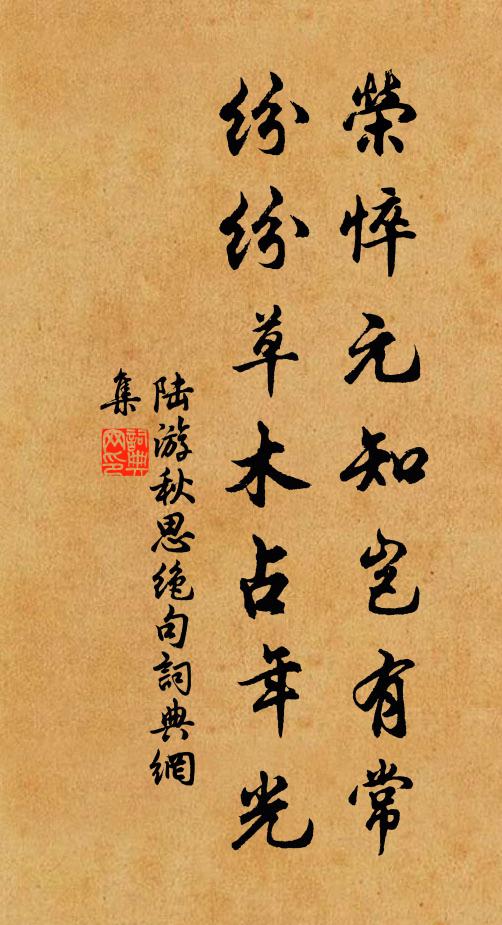 榮悴元知豈有常
紛紛草木占年光
陆游秋思絶句詞典網
集
詞典
网印